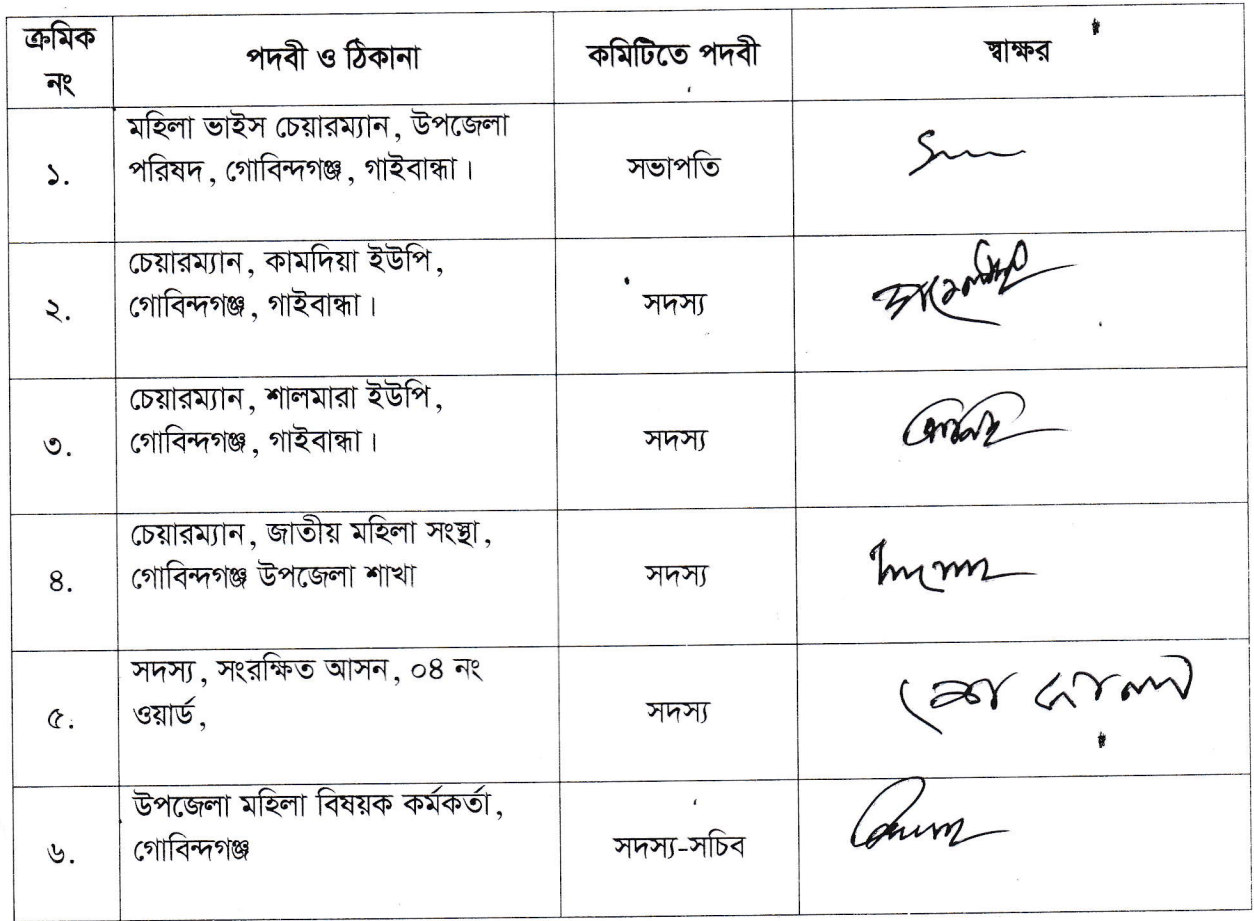 ক্রমিক নং পদবী ও ঠিকানা কমিটিতে পদবী স্বাক্ষর
মহিলা ভাইস চেয়ারম্যান, উপজেলা
১. পরিষদ, গোবিন্দগঞ্জ, গাইবান্ধা। সভাপতি
চেয়ারম্যান, কামদিয়া ইউপি,
২. গোবিন্দগঞ্জ, গাইবান্ধা। সদস্য
চেয়ারম্যান, শালমারা ইউপি,
৩. গোবিন্দগঞ্জ, গাইবান্ধা। সদস্য
চেয়ারম্যান, জাতীয় মহিলা সংস্থা,
৪. গোবিন্দগঞ্জ উপজেলা শাখা সদস্য
সদস্য, সংরক্ষিত আসন, ০৪ নং
৫. ওয়ার্ড, সদস্য
উপজেলা মহিলা বিষয়ক কর্মকর্তা,
৬. গোবিন্দগঞ্জ সদস্য-সচিব